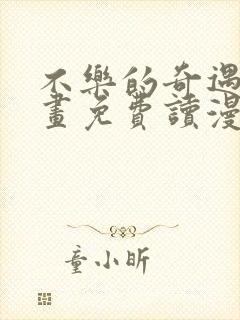 不樂的奇遇
畫免費讀漫
童小昕